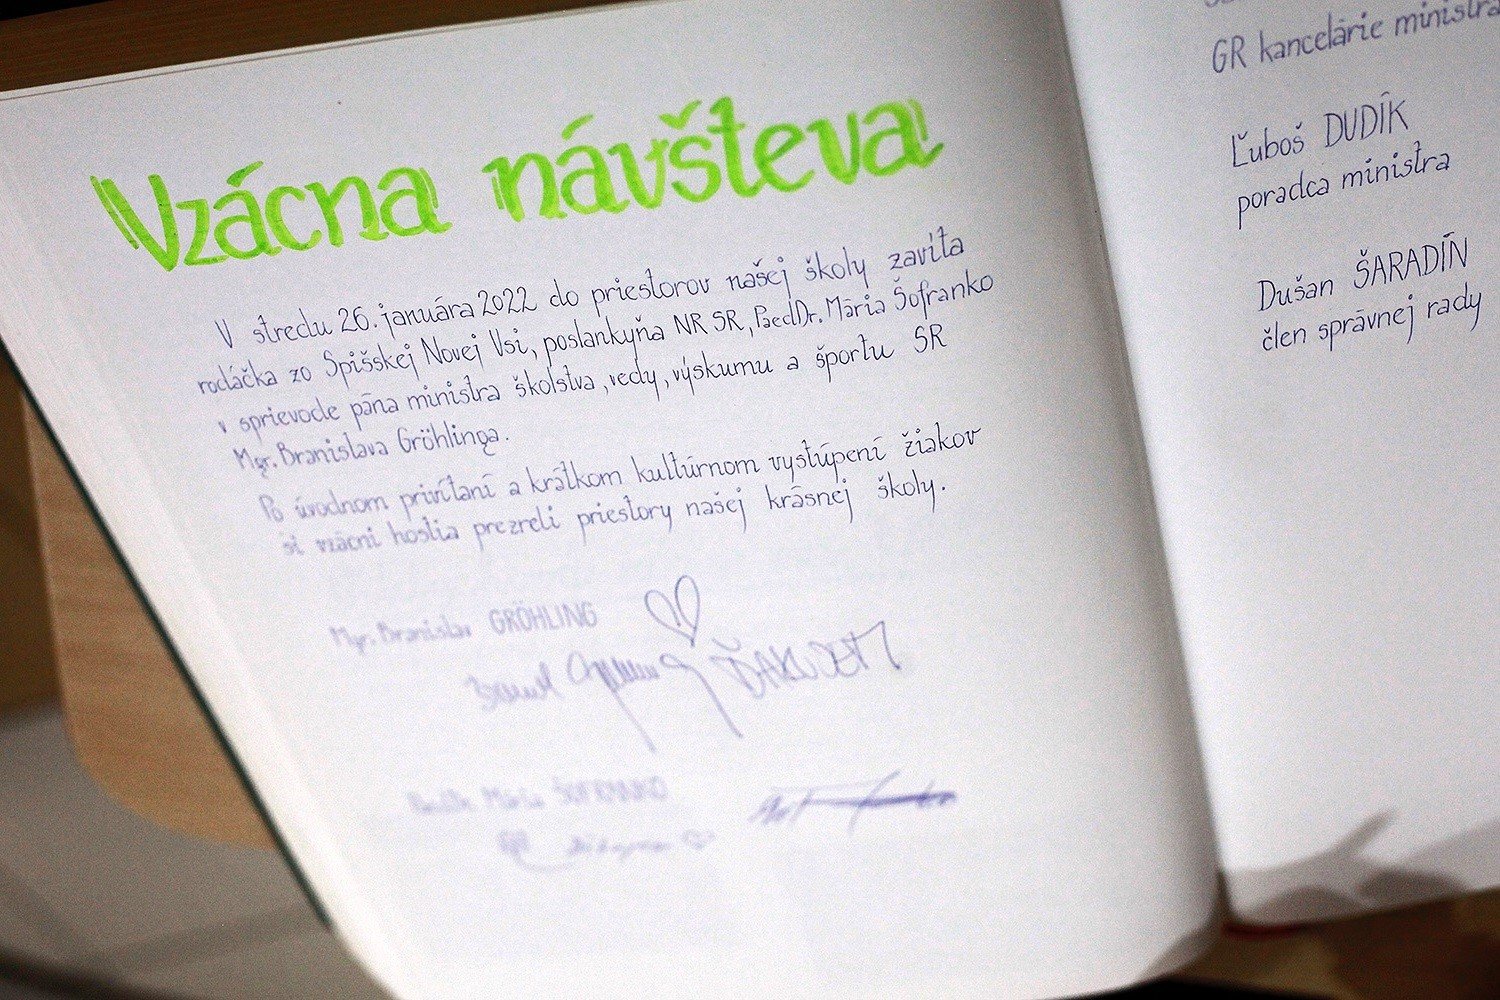 Vzácna návšteva
V stredu 26. januára 2022 do priestorov našej školy zavíta
rodáčka zo Spišskej Novej Vsi, poslankyňa NR SR, PaedDr. Mária Šofranko
v sprievode pána ministra školstva, vedy, výskumu a športu SR
Mgr. Branislava Gröhlinga.
Po úvodnom privítaní a krátkom kultúrnom vystúpení žiakov
si vzácni hostia prezreli priestory našej krásnej školy.
Mgr. Branislav GRÖHLING
ĎAKUJEM
Mária ŠOFRANKO
GR kancelárie ministra
Ľuboš DUDÍK
poradca ministra
Dušan ŠARADÍN
člen správnej rady